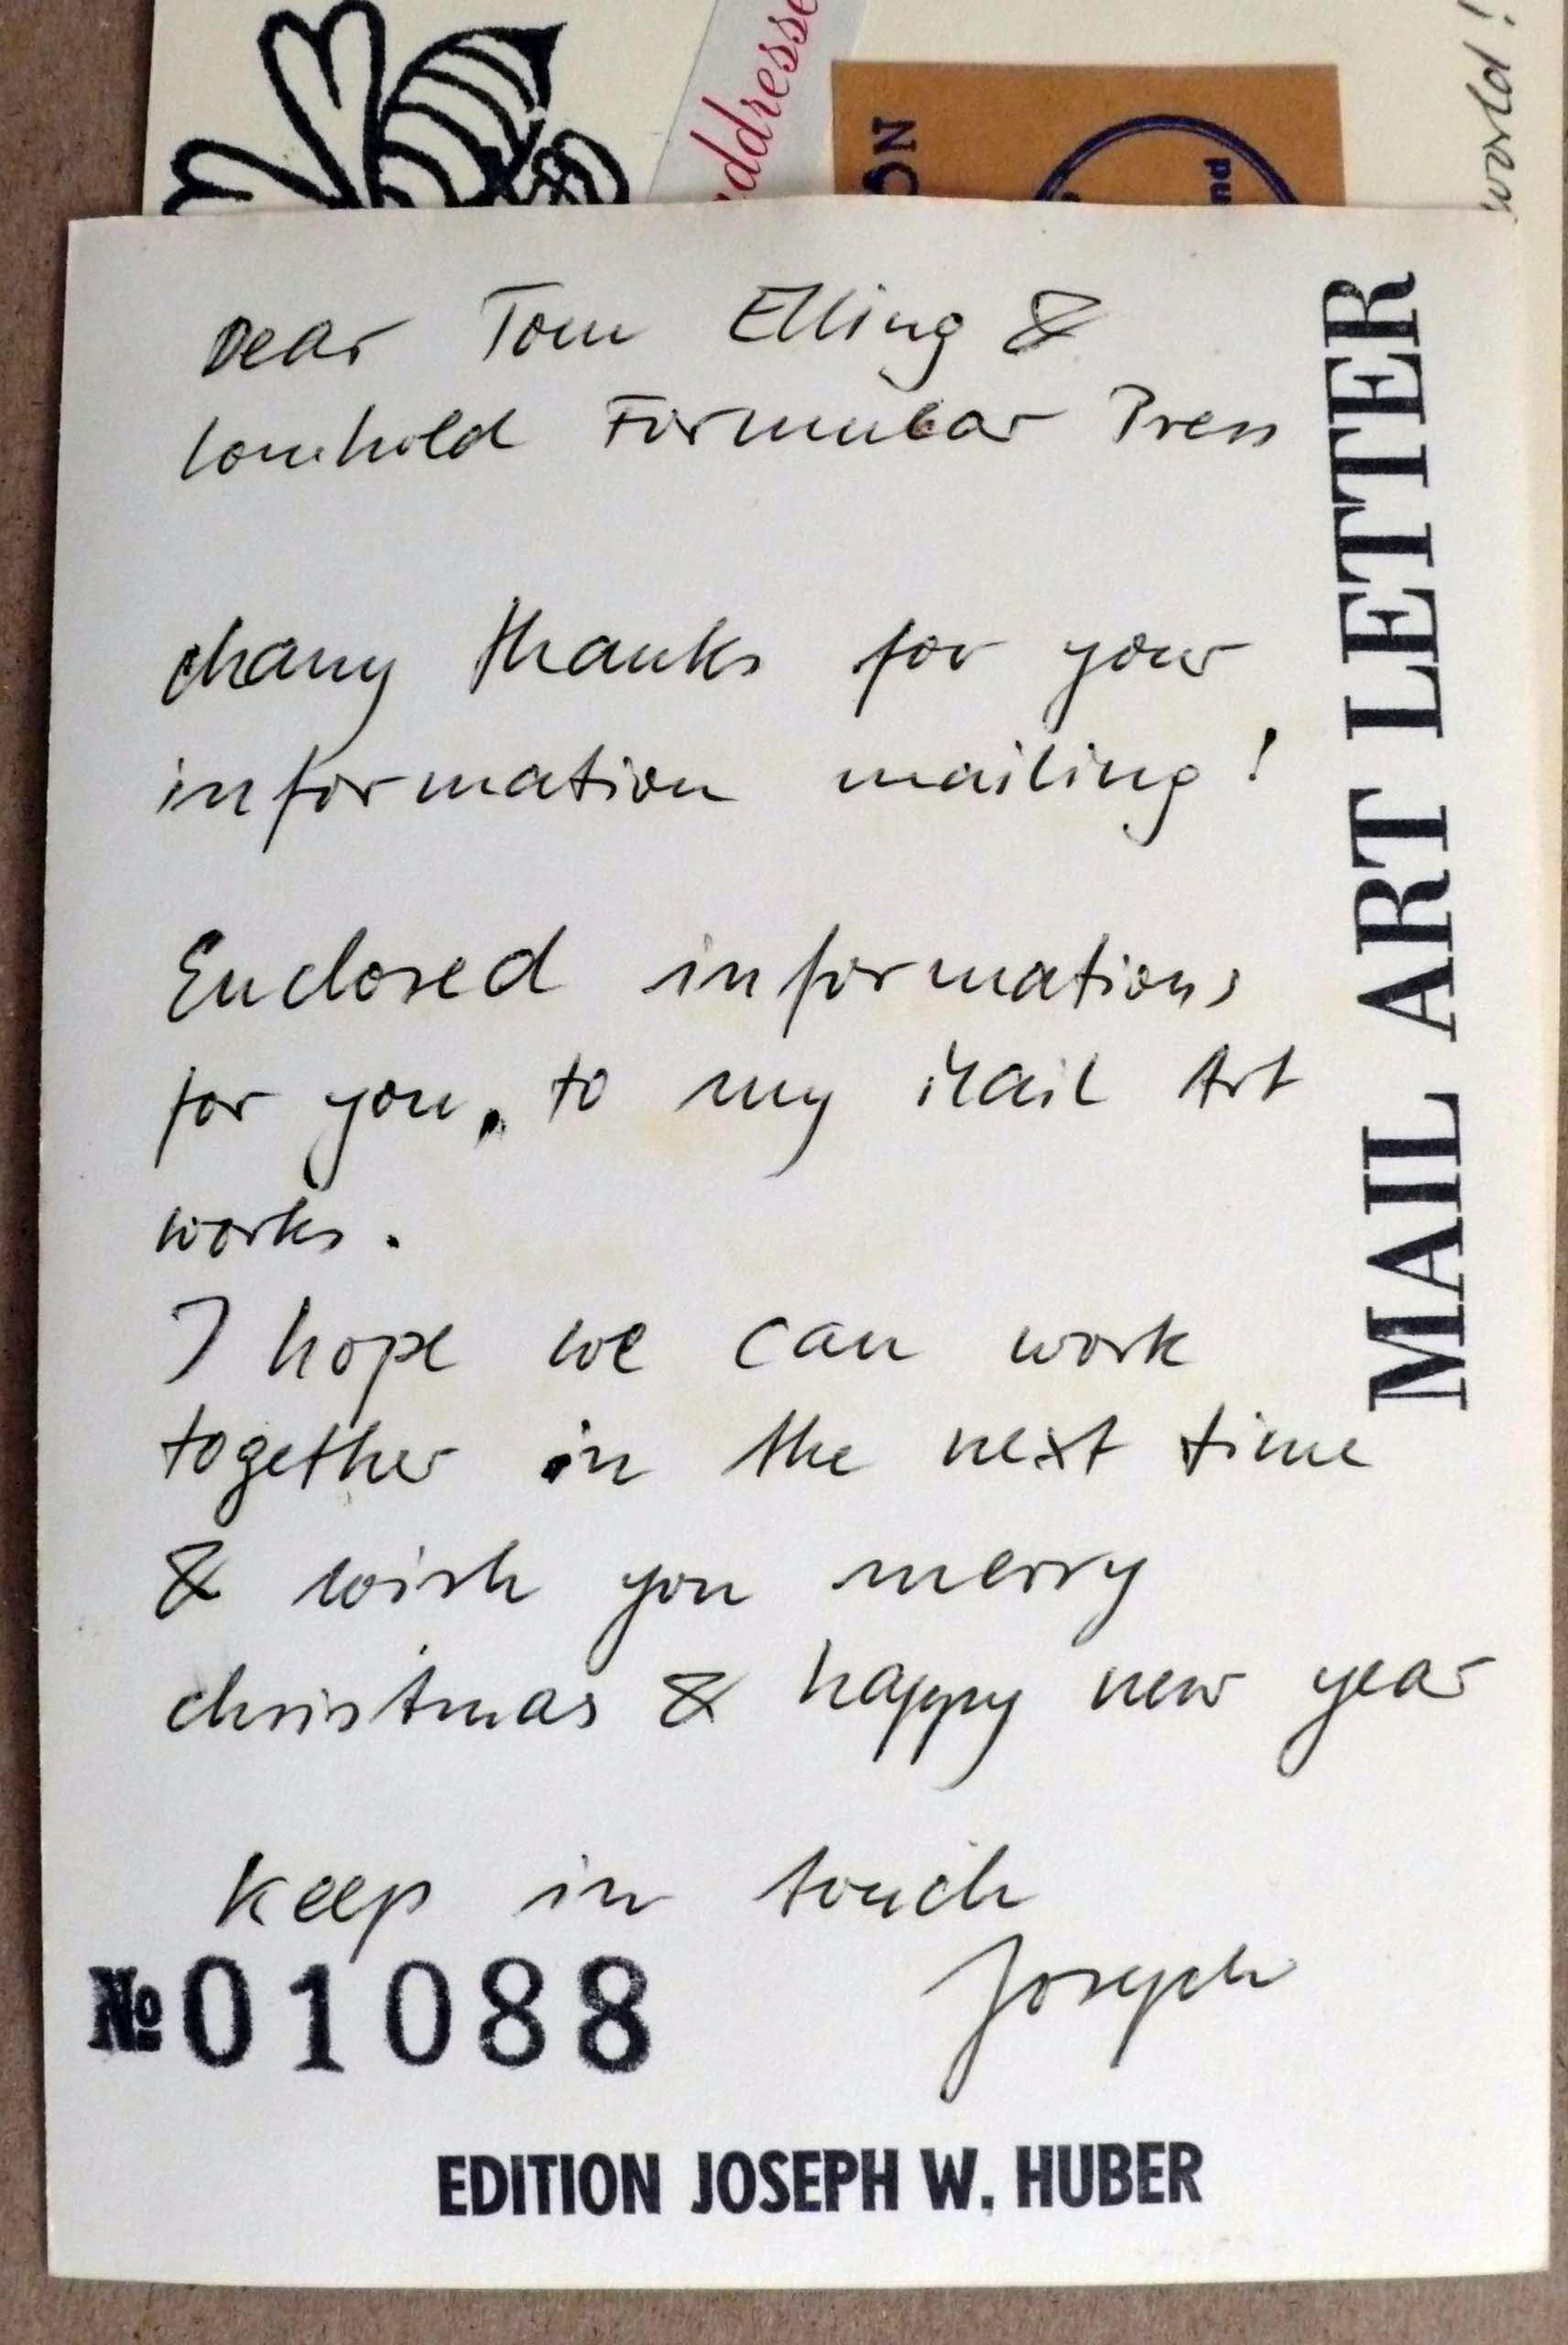 world!
Dear Tom Elling &
Lomholt Formular Press
Many thanks for your
information mailing!
Enclosed informations
for you, to my Mail Art
works.
I hope we can work
together in the next time
& wish you merry
christmas & happy new year
keep in touch
Joseph
№01088
EDITION JOSEPH W. HUBER
MAIL ART LETTER